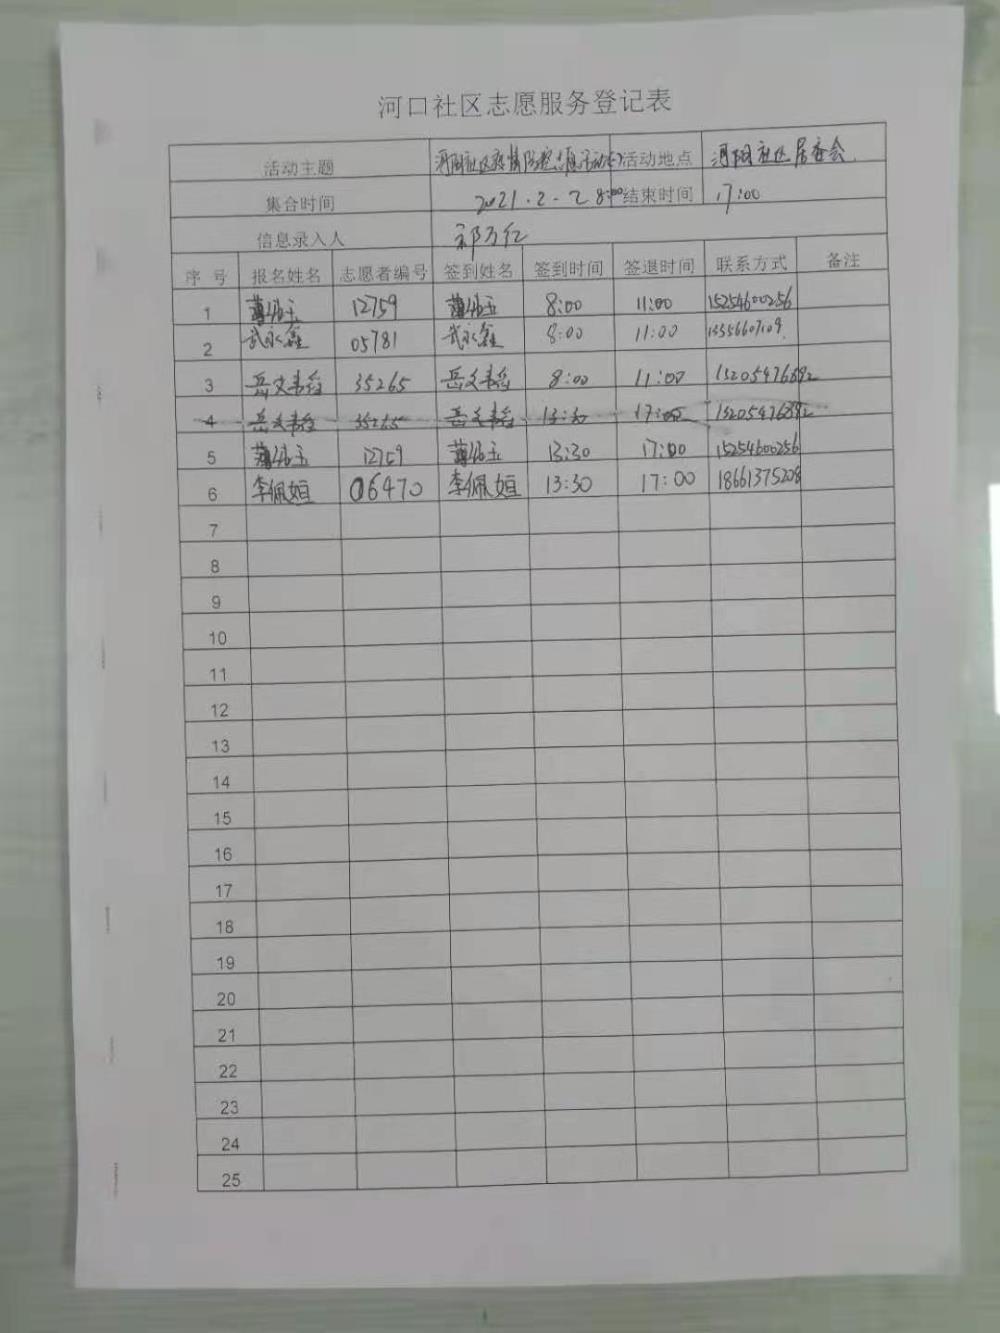 河口社区志愿服务登记表
活动主题 河阳社区疫情防控志愿活动 活动地点 河阳社区居委会
集合时间 2021.2.2 8:00 结束时间 17:00
信息录入人
序号 报名姓名 志愿者编号 签到姓名 签到时间 签退时间 联系方式 备注
1 12759 8:00 11:00 15254600256
2 武永鑫 05781 武永鑫 8:00 11:00
3 岳文韬 35265 岳文韬 8:00 11:00 13205476892
4 岳文韬 35265 岳文韬 13:30 17:00 13205476892
5 12759 13:30 17:00 15254600256
6 李佩姮 06470 李佩姮 13:30 17:00 18661375208
7
8
9
10
11
12
13
14
15
16
17
18
19
20
21
22
23
24
25